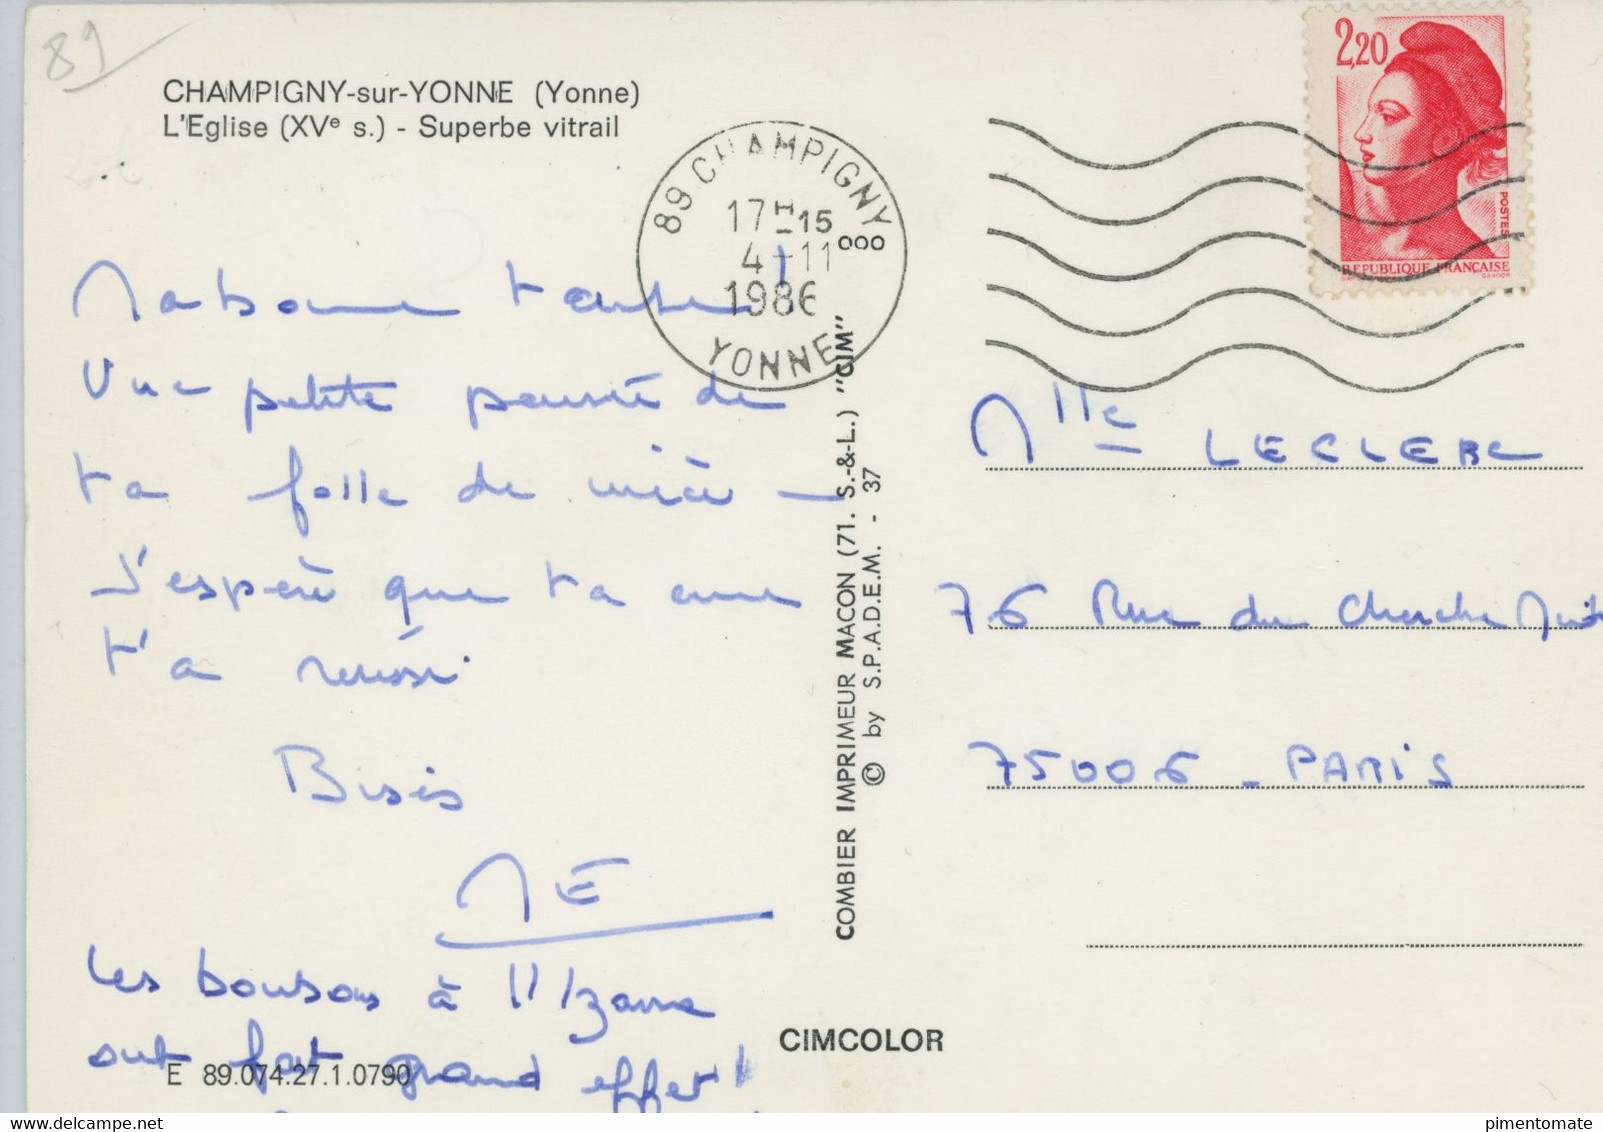 89
CHAMPIGNY-sur-YONNE (Yonne)
L'Eglise (XVe s.) - Superbe vitrail
89 CHAMPIGNY
17H15
4-11
1986
YONNE
2,20
POSTES
REPUBLIQUE FRANÇAISE
GANDON
Ma bonne tante !
Une petite pensée de
ta folle de nièce —
J'espère que ta cure
t'a réussi
Bises
ME
Les bonbons à l'Izarra
ont fait grand effet !
COMBIER IMPRIMEUR MACON (71. S.-&-L.) "CIM"
© by S.P.A.D.E.M. - 37
Mlle LECLERC
76 Rue du Cherche Midi
75006 - PARIS
CIMCOLOR
E 89.074.27.1.0790
pimentomate